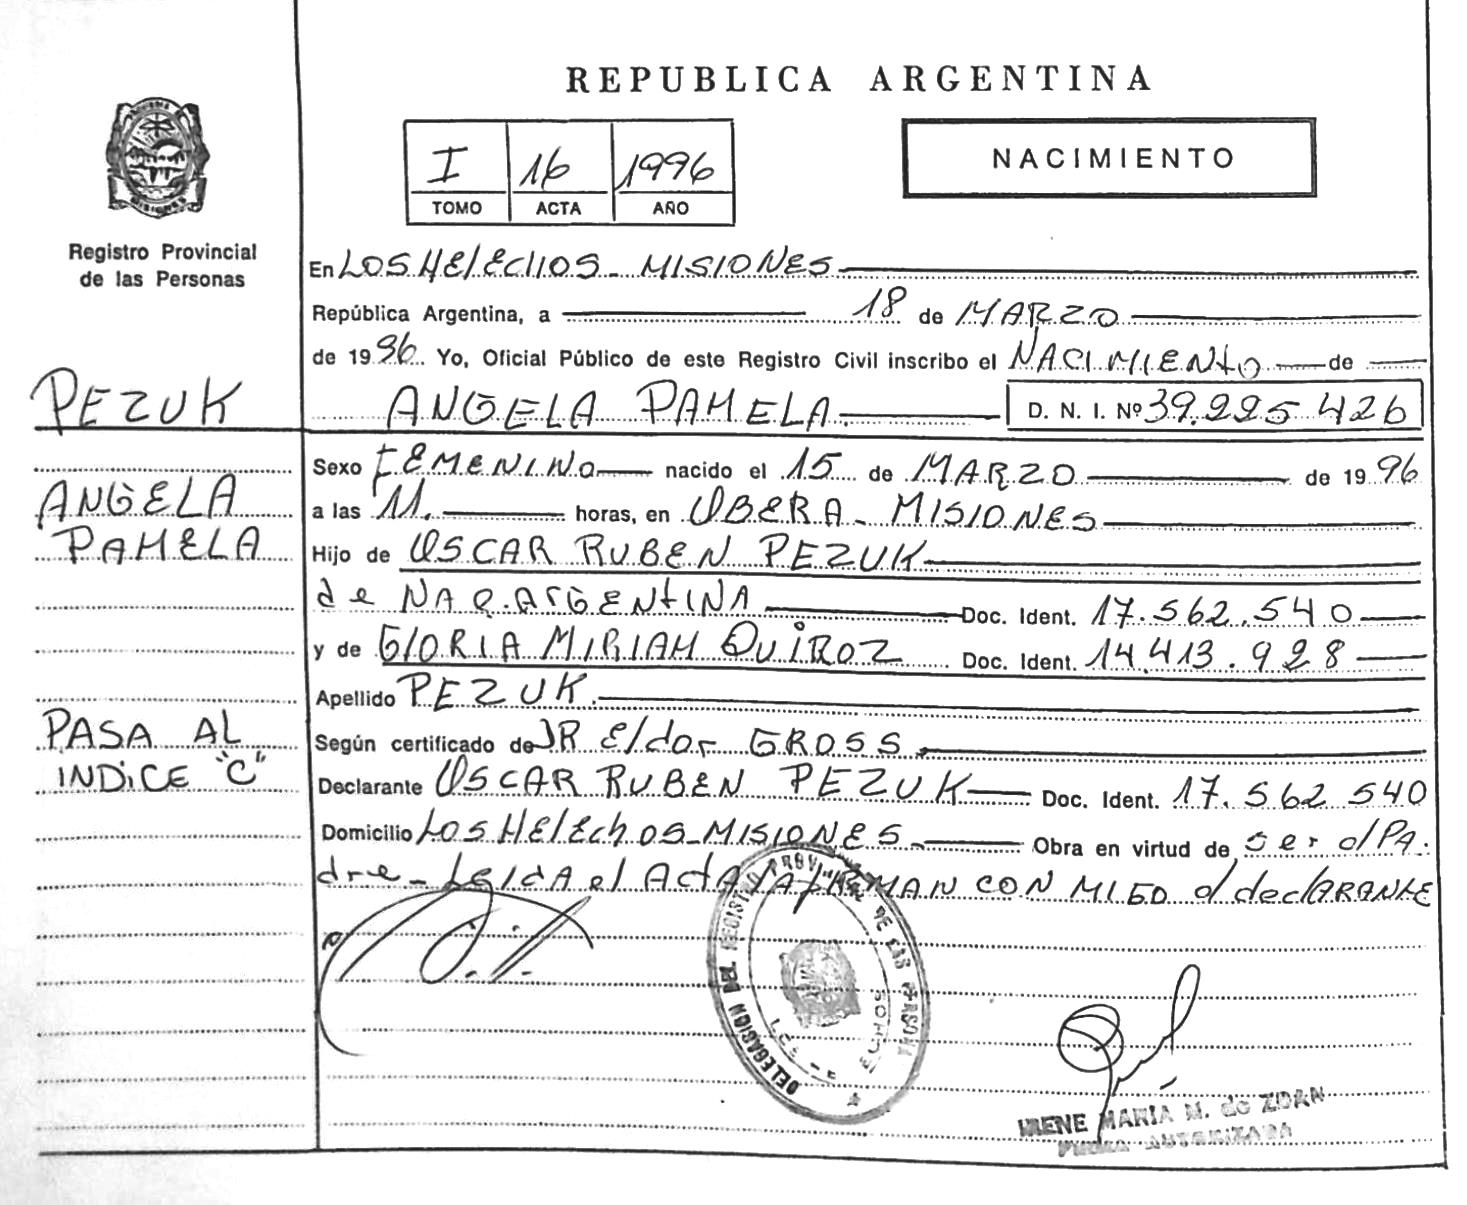 REPUBLICA ARGENTINA
I 16 1996
TOMO ACTA AÑO
NACIMIENTO
Registro Provincial
de las Personas
En LOS HElECHOS - MISIONES
República Argentina, a 18 de MARZO
de 1996. Yo, Oficial Público de este Registro Civil inscribo el NACIMIENtO de
PEZUK
ANGELA PAMELA. D. N. I. Nº 39.225 426
Sexo FEMENINO nacido el 15 de MARZO de 1996
ANGELA
a las 11. horas, en OBERA - MISIONES
PAMELA
Hijo de OSCAR RUBEN PEZUK
de NAC. ARGENtINA Doc. Ident. 17.562.540
y de GlORIA MIRIAM QUIROZ Doc. Ident. 14.413.928
Apellido PEZUK.
PASA AL
INDiCE "C"
Según certificado de DR Eldor GROSS.
Declarante OSCAR RUBEN PEZUK Doc. Ident. 17.562 540
Domicilio LOS HElEchOS - MISIONES - Obra en virtud de ser el PA.
dre - LEIDA el ActA CON MIGO el declARANtE
DELEGACION DEL REGISTRO PROV. DE LAS PERSONAS
IRENE MARÍA M. de ZDAN
FIRMA AUTORIZADA